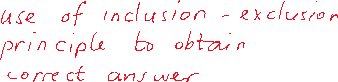 use of inclusion - exclusion
principle to obtain
correct answer